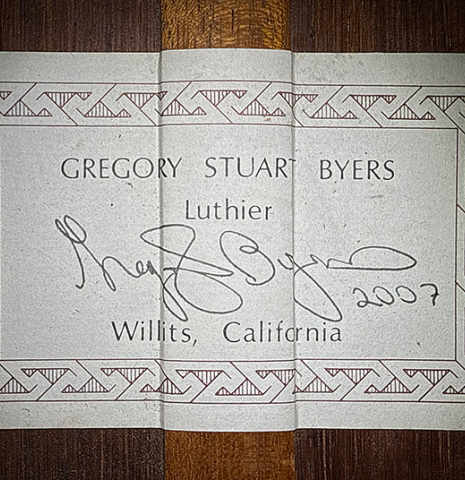 GREGORY STUART BYERS
Luthier
Greg S Byers
2007
Willits, California